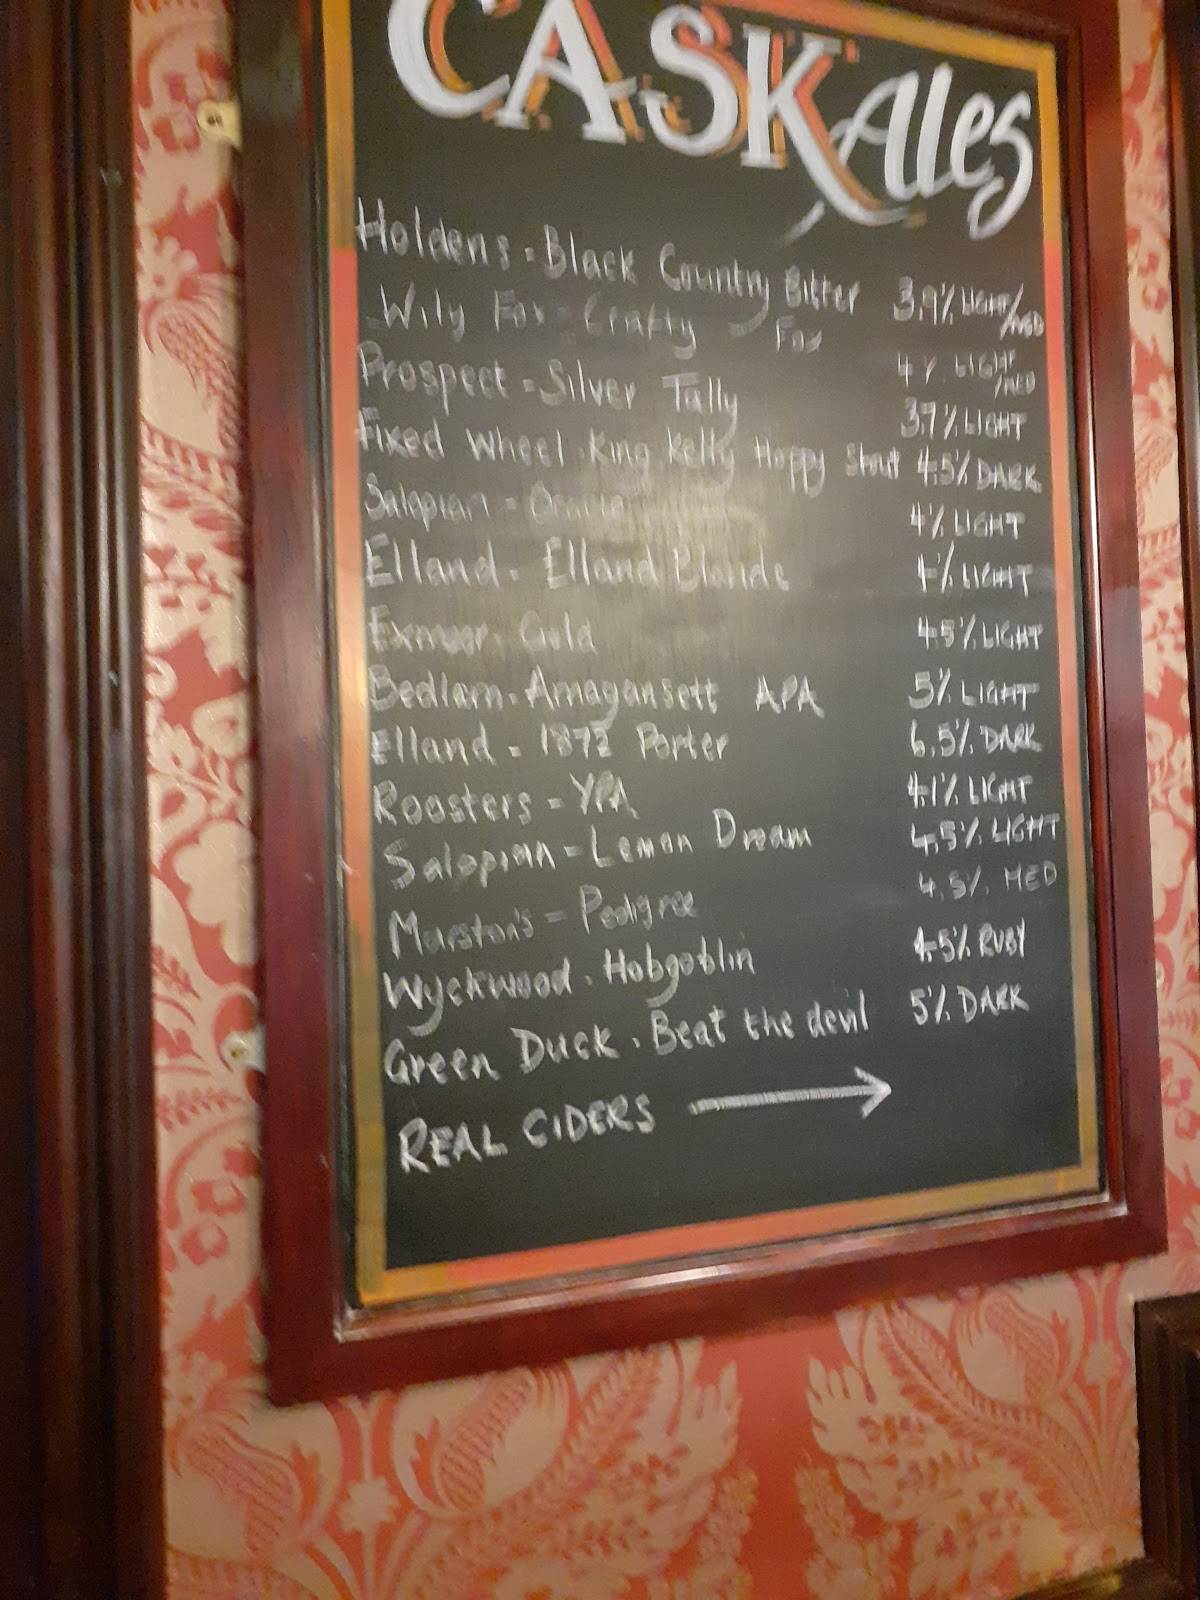 CASK Ales
Holdens - Black Country Bitter 3.9% LIGHT/MED
Wily Fox - Crafty Fox 4% LIGHT/MED
Prospect - Silver Tally 3.7% LIGHT
Fixed Wheel - King Kelly Hoppy Stout 4.5% DARK
Salopian - 4% LIGHT
Elland - Elland Blonde 4% LIGHT
Exmoor - Gold 4.5% LIGHT
Bedlam - Amagansett APA 5% LIGHT
Elland - 1872 Porter 6.5% DARK
Roosters - YPA 4.1% LIGHT
Salopian - Lemon Dream 4.5% LIGHT
Marston's - Pedigree 4.5% MED
Wyckwood - Hobgoblin 4.5% RUBY
Green Duck - Beat the devil 5% DARK
REAL CIDERS →